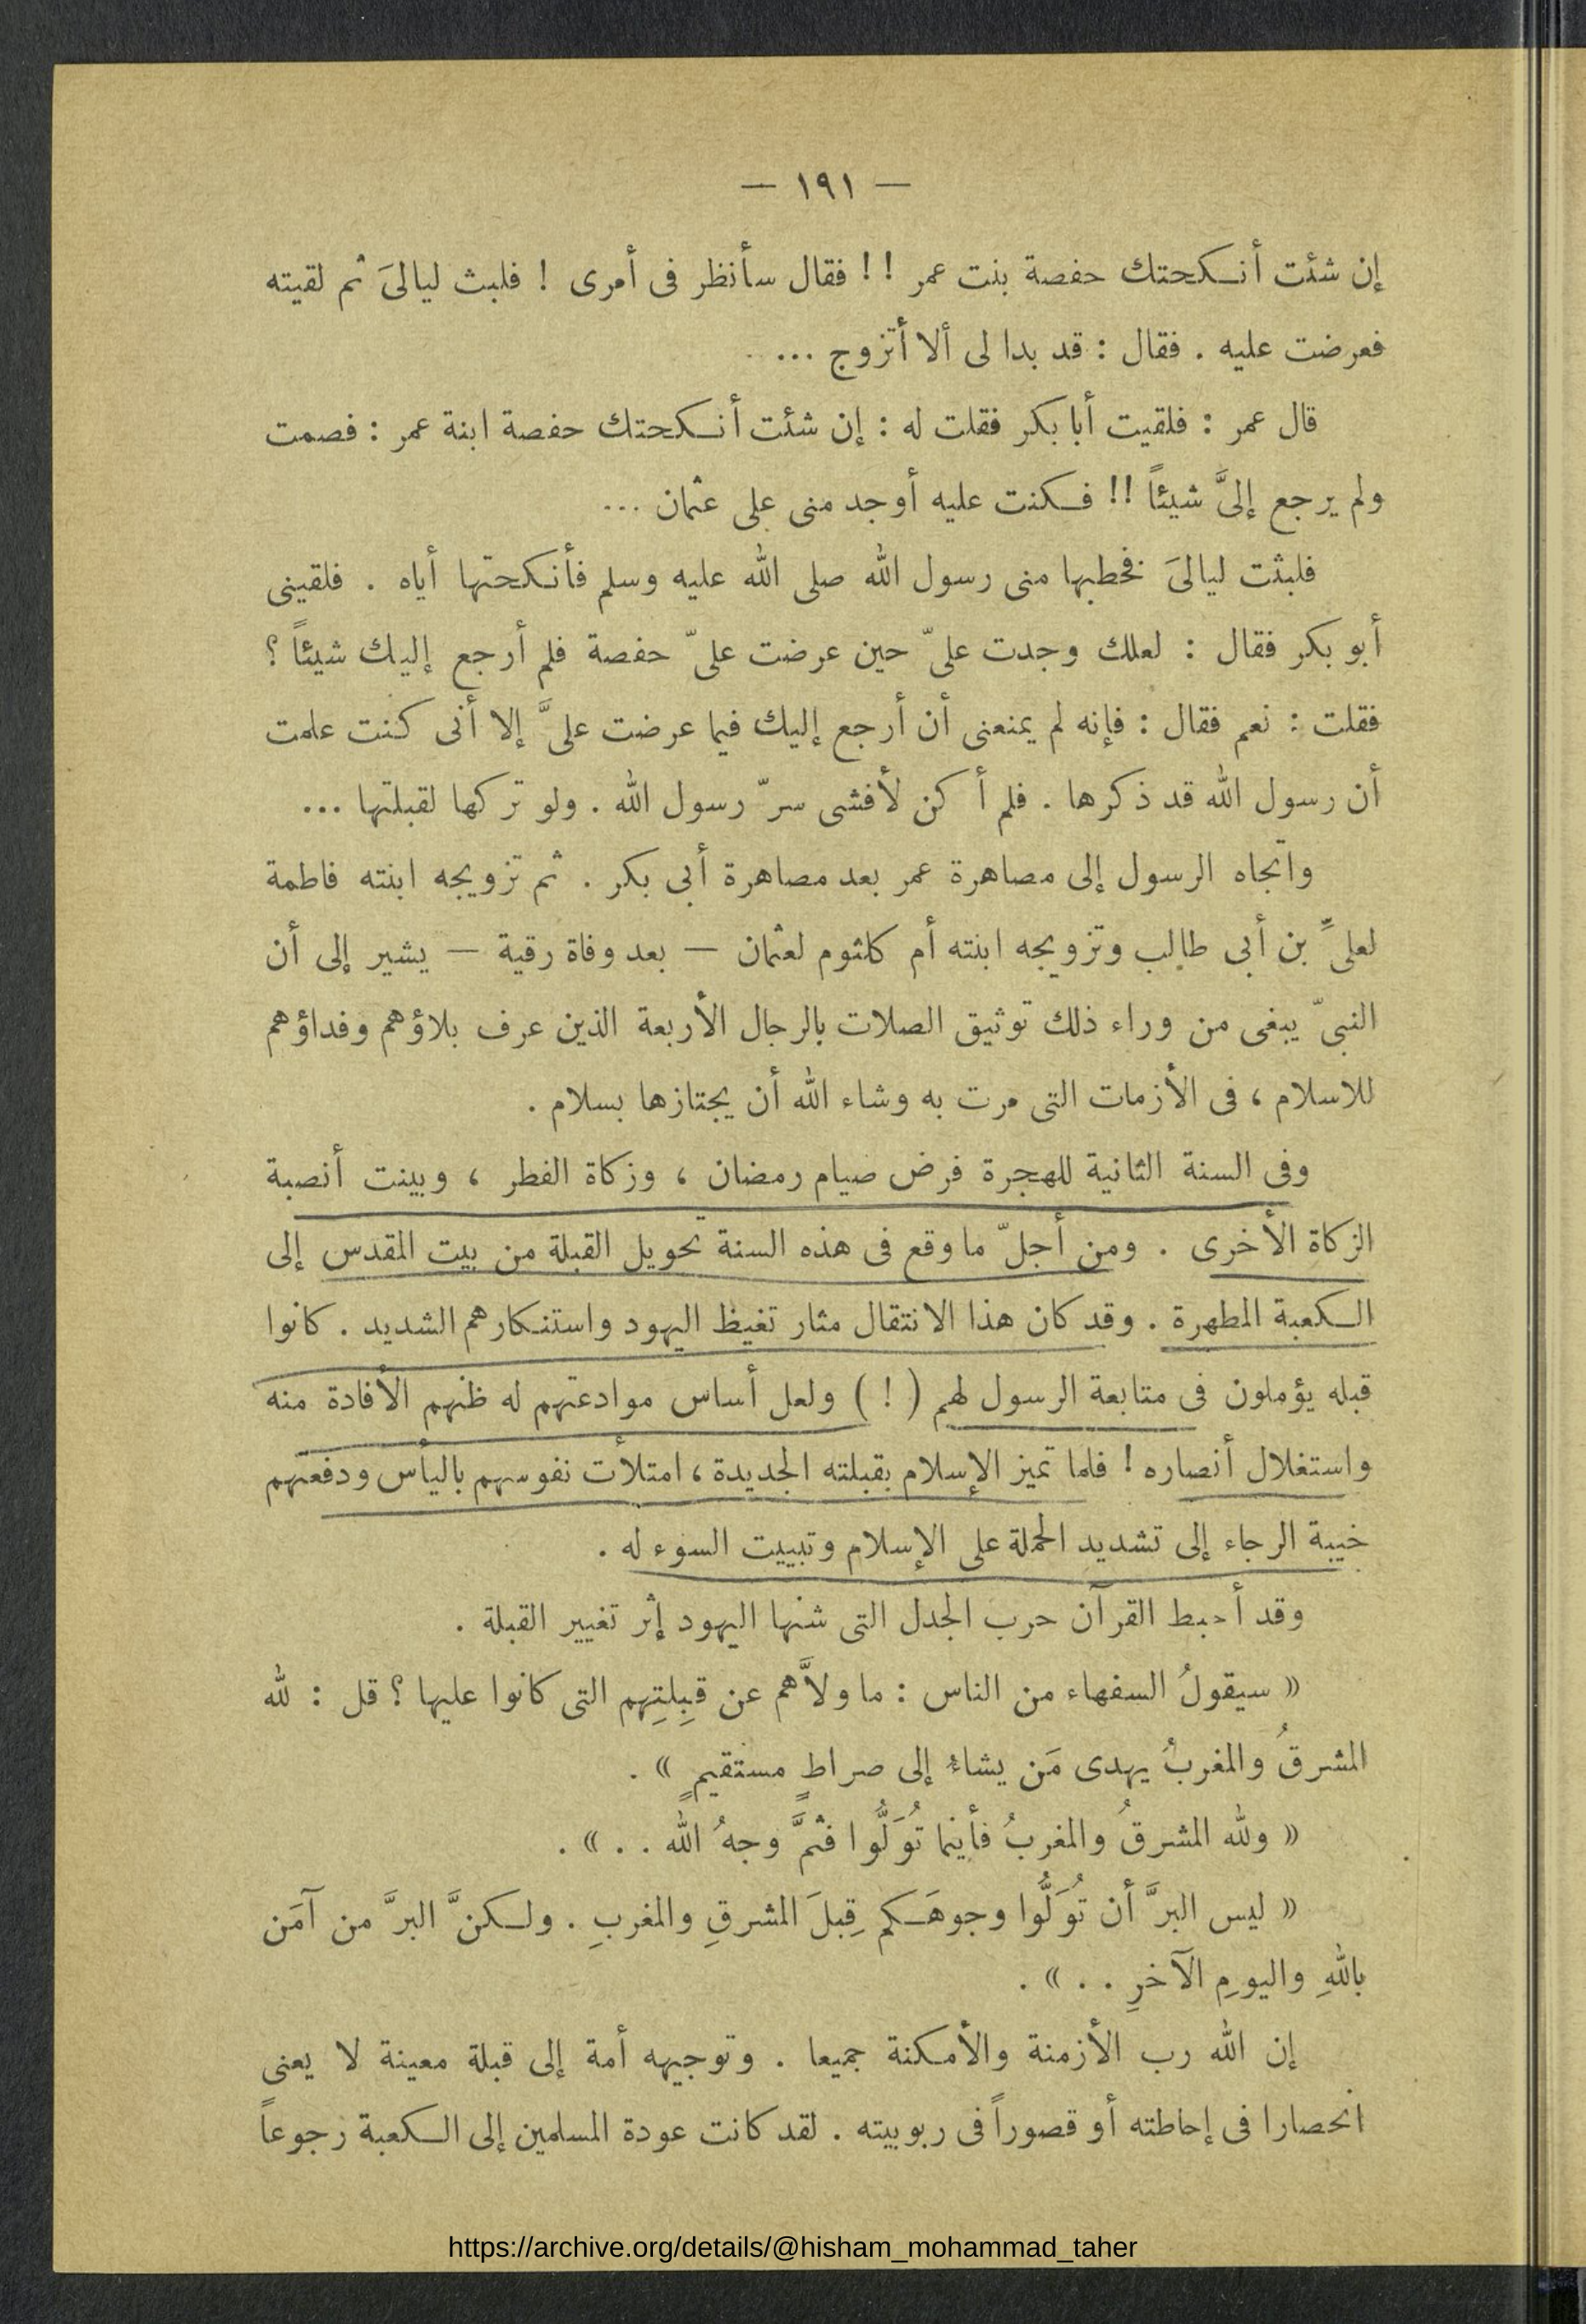 — ١٩١ —
إن شئت أنكحتك حفصة بنت عمر !! فقال سأنظر فى أمرى ! فلبث ليالىَ ثم لقيته
فعرضت عليه . فقال : قد بدا لى ألا أتزوج ...
قال عمر : فلقيت أبا بكر فقلت له : إن شئت أنكحتك حفصة ابنة عمر : فصمت
ولم يرجع إلىَّ شيئاً !! فكنت عليه أوجد منى على عثمان ...
فلبثت ليالىَ فخطبها منى رسول الله صلى الله عليه وسلم فأنكحتها أياه . فلقينى
أبو بكر فقال : لعلك وجدت علىّ حين عرضت علىّ حفصة فلم أرجع إليك شيئاً ؟
فقلت : نعم فقال : فإنه لم يمنعنى أن أرجع إليك فيما عرضت علىَّ إلا أنى كنت علمت
أن رسول الله قد ذكرها . فلم أكن لأفشى سرّ رسول الله . ولو تركها لقبلتها ...
واتجاه الرسول إلى مصاهرة عمر بعد مصاهرة أبى بكر . ثم تزويجه ابنته فاطمة
لعلىِّ بن أبى طالب وتزويجه ابنته أم كلثوم لعثمان — بعد وفاة رقية — يشير إلى أن
النبىّ يبغى من وراء ذلك توثيق الصلات بالرجال الأربعة الذين عرف بلاؤهم وفداؤهم
للاسلام ، فى الأزمات التى مرت به وشاء الله أن يجتازها بسلام .
وفى السنة الثانية للهجرة فرض صيام رمضان ، وزكاة الفطر ، وبينت أنصبة
الزكاة الأخرى . ومن أجلّ ما وقع فى هذه السنة تحويل القبلة من بيت المقدس إلى
الكعبة المطهرة . وقد كان هذا الانتقال مثار تغيظ اليهود واستنكارهم الشديد . كانوا
قبله يؤملون فى متابعة الرسول لهم ( ! ) ولعل أساس موادعتهم له ظنهم الأفادة منه
واستغلال أنصاره ! فلما تميز الإسلام بقبلته الجديدة ، امتلأت نفوسهم باليأس ودفعتهم
خيبة الرجاء إلى تشديد الحملة على الإسلام وتبييت السوء له .
وقد أحبط القرآن حرب الجدل التى شنها اليهود إثر تغيير القبلة .
« سيقولُ السفهاء من الناس : ما ولاَّهم عن قِبِلتِهم التى كانوا عليها ؟ قل : لله
المشرقُ والمغربُ يهدى مَن يشاءُ إلى صراطٍ مستقيمٍ » .
« ولله المشرقُ والمغربُ فأينما تُوَلُّوا فثمَّ وجهُ الله . . » .
« ليس البرَّ أن تُوَلُّوا وجوهَكم قِبلَ المشرقِ والمغربِ . ولكنَّ البرَّ من آمَن
باللهِ واليومِ الآخرِ . . » .
إن الله رب الأزمنة والأمكنة جميعا . وتوجيهه أمة إلى قبلة معينة لا يعنى
انحصارا فى إحاطته أو قصوراً فى ربوبيته . لقد كانت عودة المسلمين إلى الكعبة رجوعاً
https://archive.org/details/@hisham_mohammad_taher